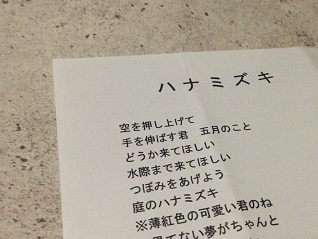 ハナミズキ
空を押し上げて
手を伸ばす君　五月のこと
どうか来てほしい
水際まで来てほしい
つぼみをあげよう
庭のハナミズキ
※薄紅色の可愛い君のね
てない夢がちゃんと